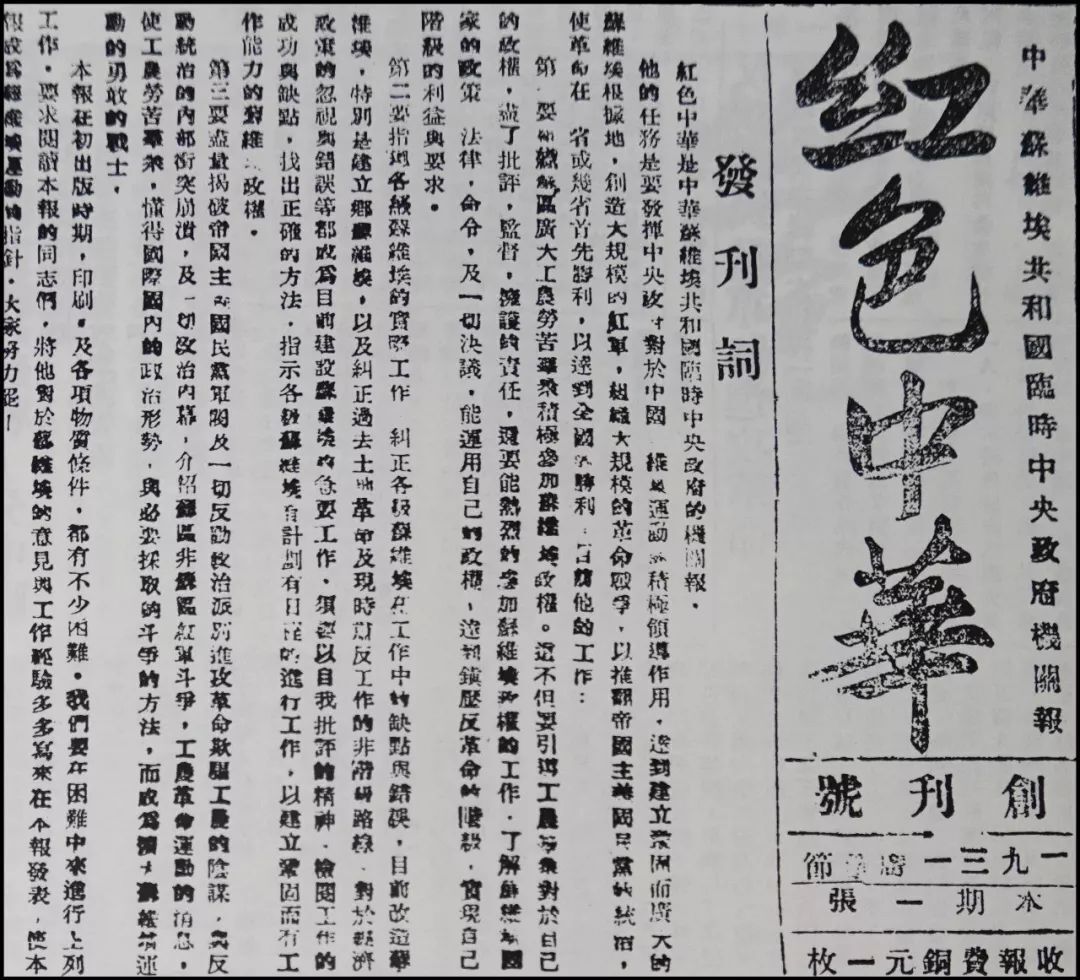 中華蘇維埃共和國臨時中央政府機關報
紅色中華
創刊號
一九三一 節
本期一張
收報費銅元一枚
發刊詞
紅色中華是中華蘇維埃共和國臨時中央政府的機關報，
他的任務是要發揮中央政府對於中國 維埃運動的積極領導作用，達到建立鞏固而廣大的
蘇維埃根據地，創造大規模的紅軍，組織大規模的革命戰爭，以推翻帝國主義國民黨的統治，
使革命在 省或幾省首先勝利，以達到全國的勝利 目前他的工作：
第 要 廣大工農勞苦羣衆積極參加蘇維埃政權。這不但要引導工農 衆對於自己
的政權，盡了批評，監督，擁護的責任，還要能熱烈的參加蘇維埃政權的工作，了解蘇維埃國
家的政策 法律，命令，及一切決議，能運用自己的政權，達到鎮壓反革命的階級，實現自己
階級的利益與要求。
第二要指導各級蘇維埃的實際工作 糾正各級蘇維埃在工作中的缺點與錯誤，目前改造蘇
維埃，特別是建立鄉蘇維埃，以及糾正過去土地革命及現時肅反工作的非階級路線 對於經濟
政策的忽視與錯誤等都成爲目前建設蘇維埃的急要工作，須要以自我批評的精神 檢閱工作的
成功與缺點，找出正確的方法，指示各級蘇維埃有計劃有日程的進行工作，以建立鞏固而有工
作能力的蘇維 政權。
第三要盡量揭破帝國主 國民黨軍閥及一切反動政治派別進攻革命欺騙工農的陰謀，與反
動統治的內部衝突崩潰，及一切政治內幕，介紹蘇區非蘇區紅軍斗爭，工農革命運動的消息，
使工農勞苦羣衆，懂得國際國內的政治形勢，與必要採取的斗爭的方法，而成爲 大蘇維埃運
動的勇敢的戰士，
本報在初出版時期，印刷，及各項物質條件，都有不少困難。我們要在困難中來進行上列
工作，要求閱讀本報的同志們，將他對於蘇維埃的意見與工作經驗多多寫來在本報發表，使本
報成爲蘇維埃運動的指針，大家努力罷！